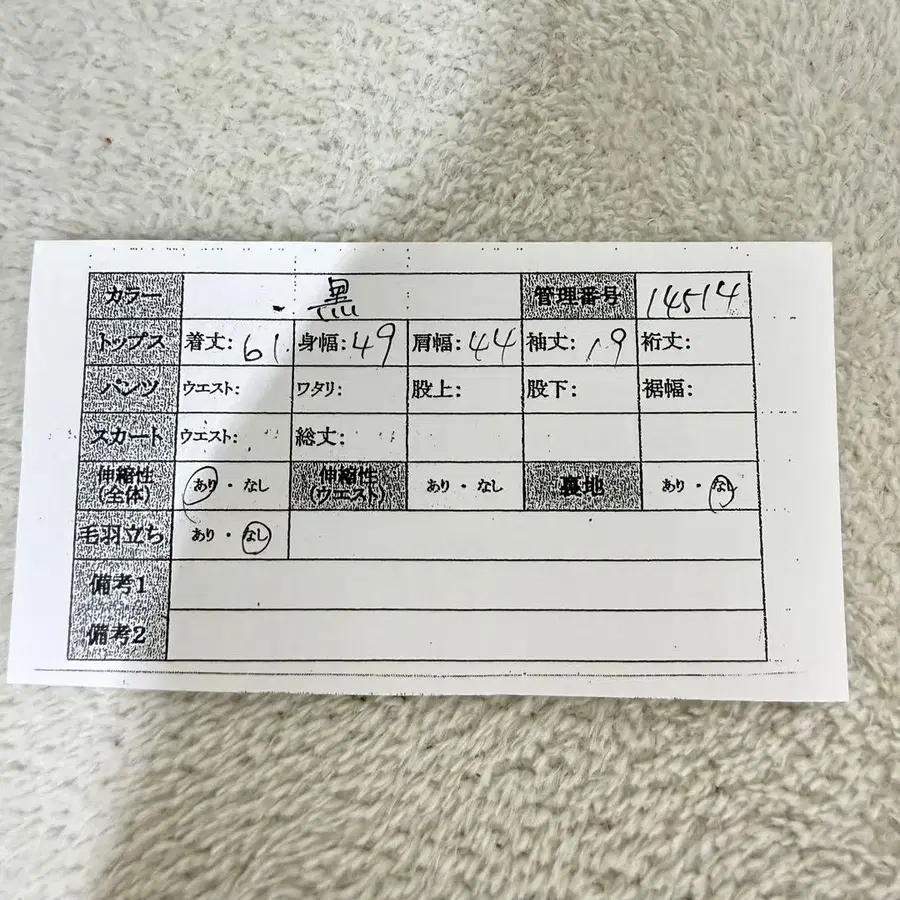 カラー 黒 管理番号 14514
トップス 着丈: 61 身幅: 49 肩幅: 44 袖丈: 19 裄丈:
パンツ ウエスト: ワタリ: 股上: 股下: 裾幅:
スカート ウエスト: 総丈:
伸縮性(全体) あり・なし 伸縮性(ウエスト) あり・なし 裏地 あり・なし
毛羽立ち あり・なし
備考1
備考2